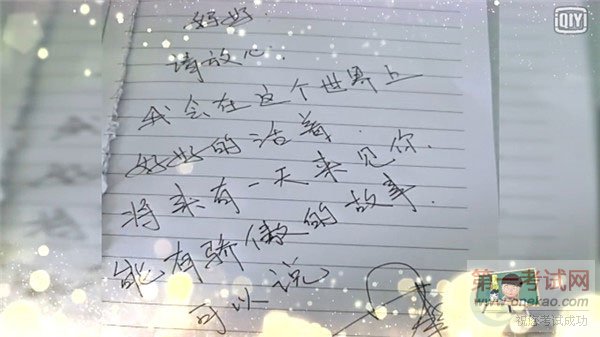 QIY
好好.
请放心.
我会在这个世界上
好好的活着.
将来有一天来见你.
能有骄傲的故事.
可以说
第一考试网
www.onekao.com
祝您考试成功